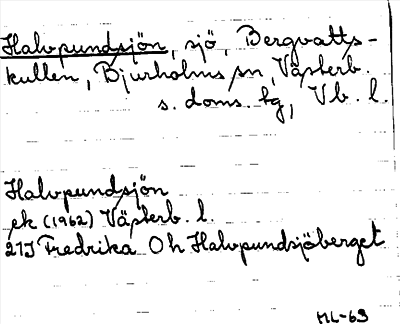 Halvpundsjön, sjö, Bergvatts-
kullen, Bjurholms sn, Västerb.
s. doms. tg, Vb. l.
Halvpundsjön
ek (1962) Västerb. l.
21J Fredrika Oh Halvpundsjöberget
ML-63